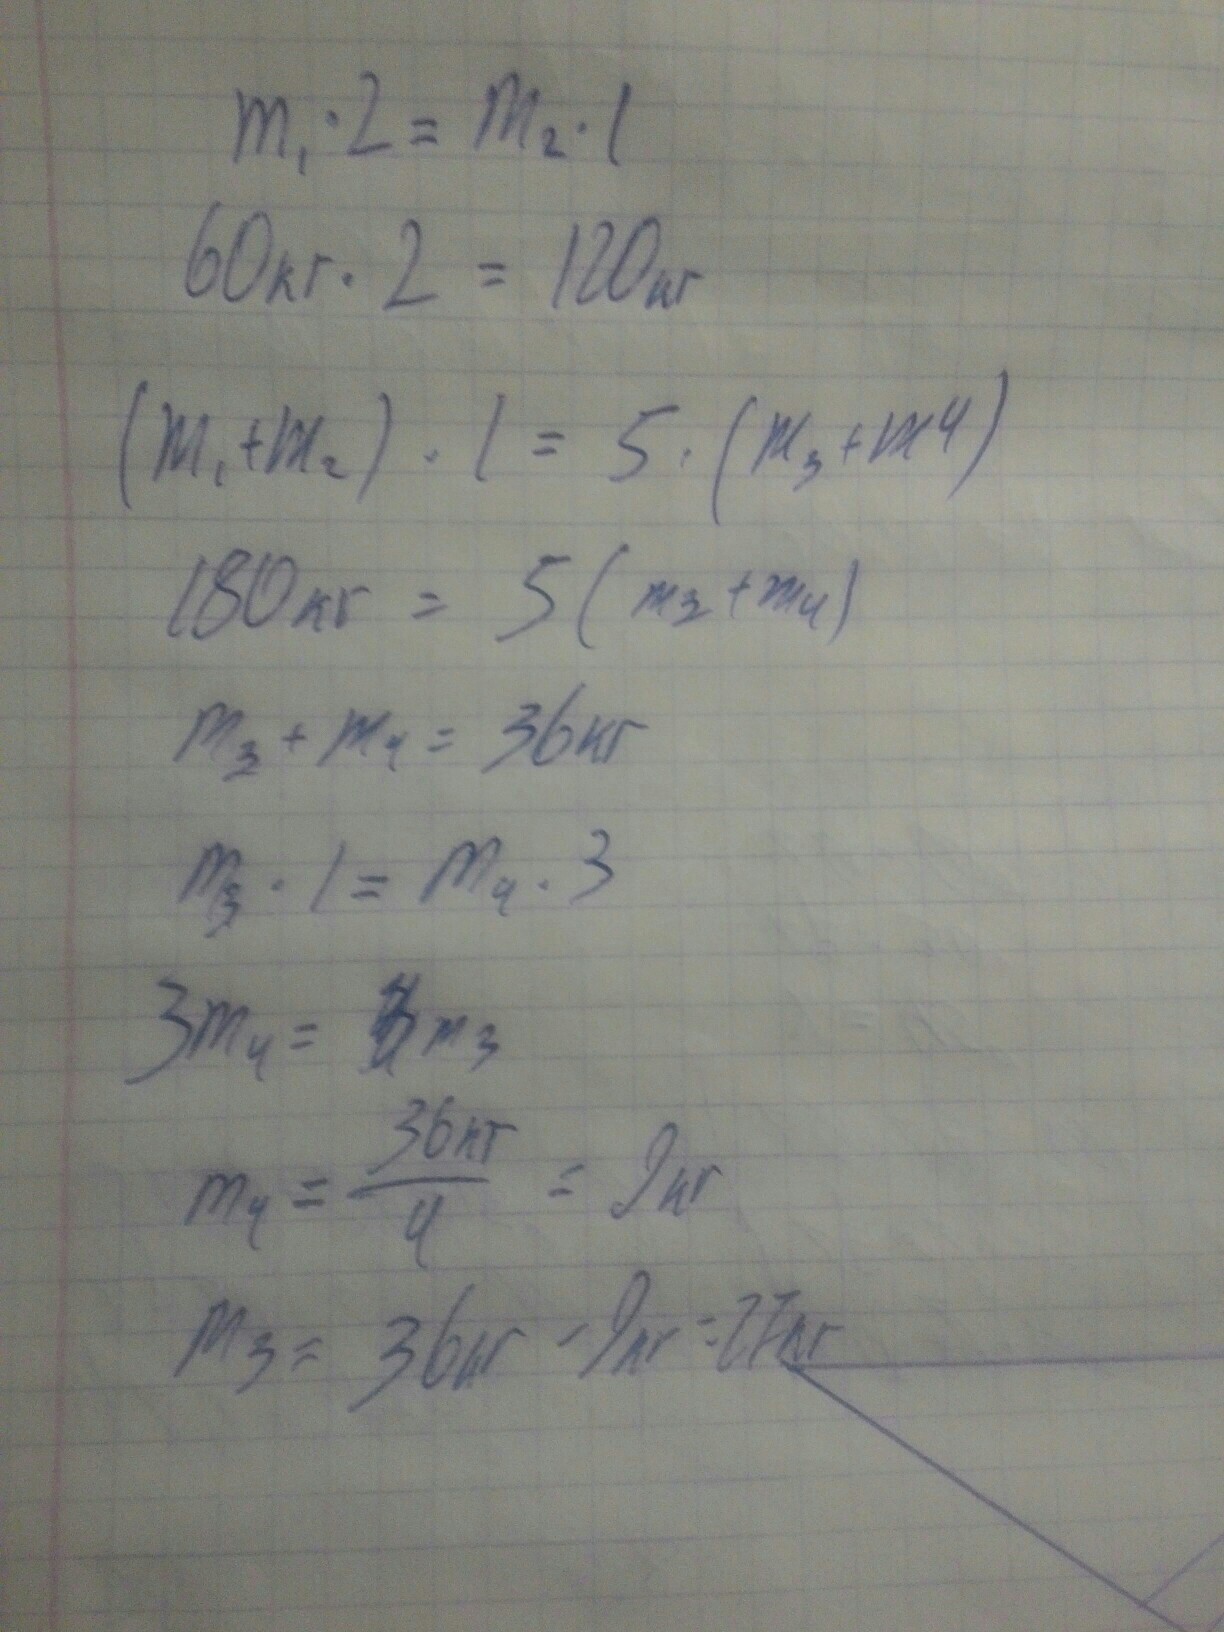 m₁·2 = m₂·1
60кг·2 = 120кг
(m₁+m₂)·1 = 5·(m₃+m4)
180кг = 5(m₃+m₄)
m₃ + m₄ = 36кг
m₃·1 = m₄·3
3m₄ = m₃
m₄ = 36кг/4 = 9кг
m₃ = 36кг - 9кг = 27кг